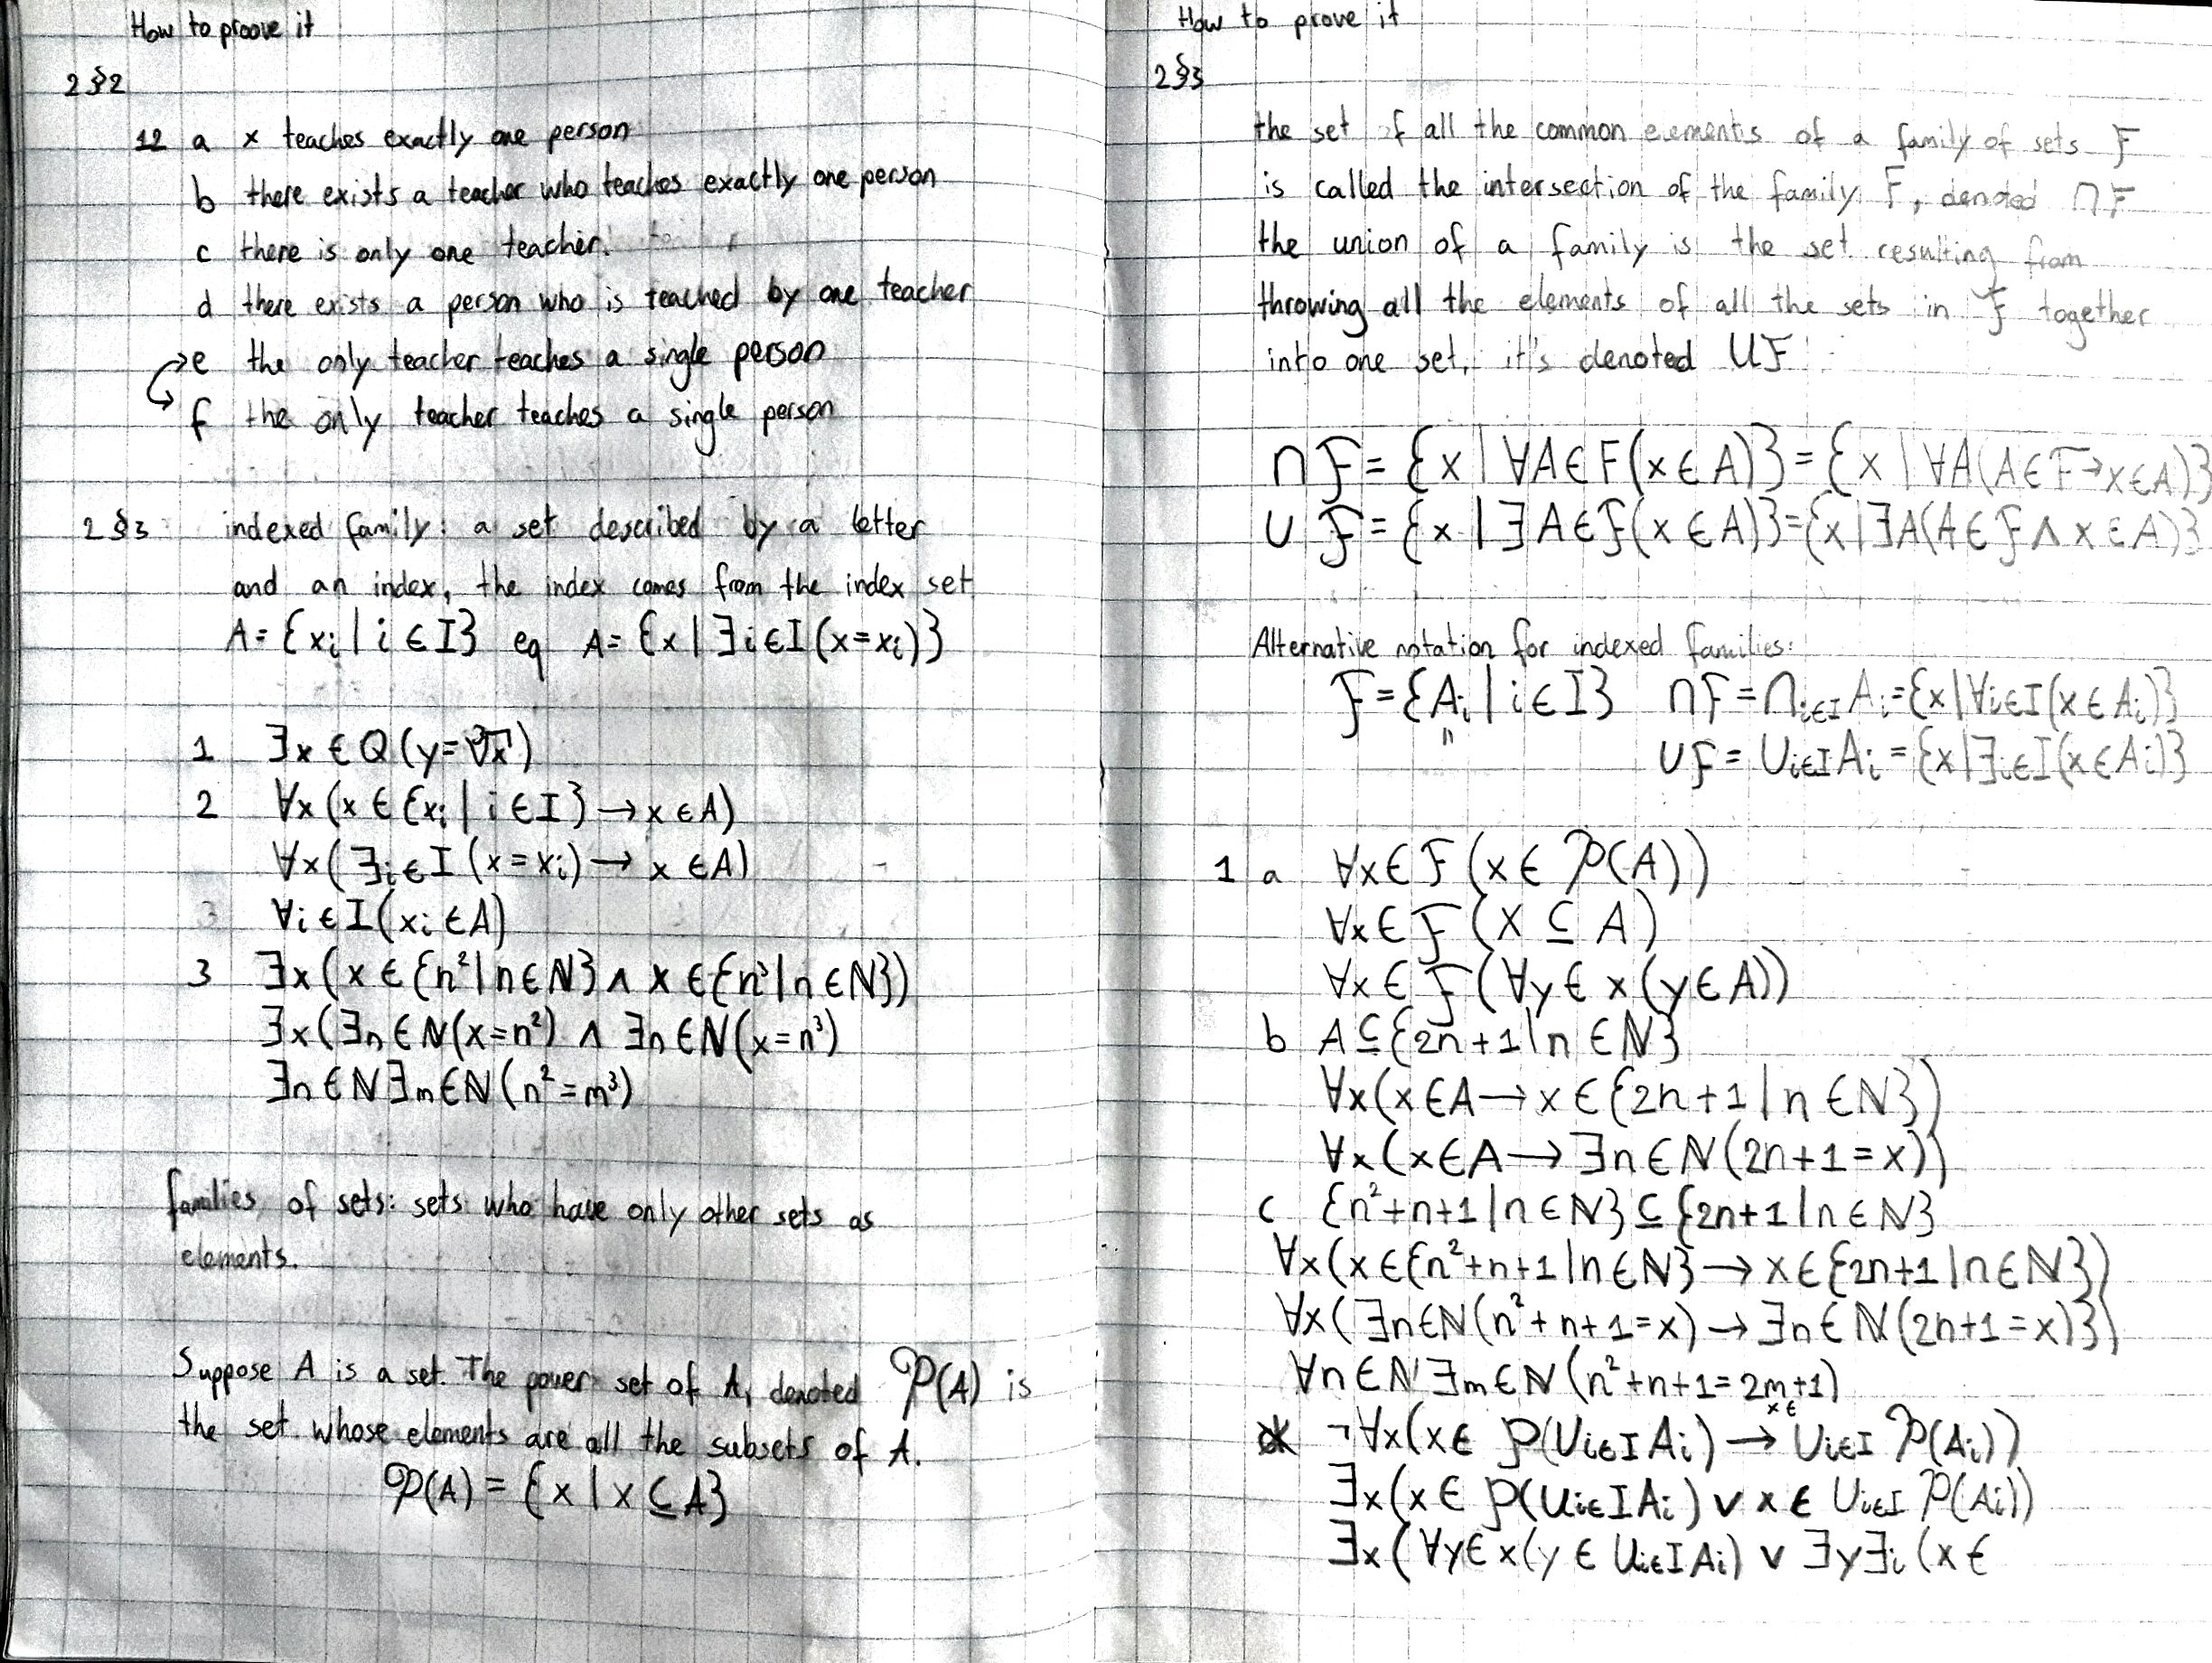 How to proove it
2§2
12 a x teaches exactly one person
b there exists a teacher who teaches exactly one person
c there is only one teacher.
d there exists a person who is teached by one teacher
e the only teacher teaches a single person
f the only teacher teaches a single person
2§3 indexed family: a set described by a letter
and an index, the index comes from the index set
A={xᵢ|i∈I} eq A={x|∃i∈I(x=xᵢ)}
1 ∃x∈Q(y=∛x)
2 ∀x(x∈{xᵢ|i∈I}→x∈A)
∀x(∃i∈I(x=xᵢ)→x∈A)
3 ∀i∈I(xᵢ∈A)
3 ∃x(x∈{n²|n∈ℕ}∧x∈{n³|n∈ℕ})
∃x(∃n∈ℕ(x=n²)∧∃n∈ℕ(x=n³)
∃n∈ℕ∃m∈ℕ(n²=m³)
families of sets: sets who have only other sets as
elements.
Suppose A is a set. The power set of A, denoted 𝒫(A) is
the set whose elements are all the subsets of A.
𝒫(A)={x|x⊆A}
How to prove it
2§3
the set of all the common elements of a family of sets F
is called the intersection of the family F, denoted ∩F
the union of a family is the set resulting from
throwing all the elements of all the sets in F together
into one set, it's denoted ∪F
∩F={x|∀A∈F(x∈A)}={x|∀A(A∈F→x∈A)}
∪F={x|∃A∈F(x∈A)}={x|∃A(A∈F∧x∈A)}
Alternative notation for indexed families:
F={Aᵢ|i∈I} ∩F=∩i∈I Aᵢ={x|∀i∈I(x∈Aᵢ)}
∪F=∪i∈I Aᵢ={x|∃i∈I(x∈Aᵢ)}
1 a ∀x∈F(x∈𝒫(A))
∀x∈F(x⊆A)
∀x∈F(∀y∈x(y∈A))
b A⊆{2n+1|n∈ℕ}
∀x(x∈A→x∈{2n+1|n∈ℕ})
∀x(x∈A→∃n∈ℕ(2n+1=x))
c {n²+n+1|n∈ℕ}⊆{2n+1|n∈ℕ}
∀x(x∈{n²+n+1|n∈ℕ}→x∈{2n+1|n∈ℕ})
∀x(∃n∈ℕ(n²+n+1=x)→∃n∈ℕ(2n+1=x)})
∀n∈ℕ∃m∈ℕ(n²+n+1=2m+1)
¬∀x(x∈𝒫(∪i∈I Aᵢ)→x∈∪i∈I 𝒫(Aᵢ))
∃x(x∈𝒫(∪i∈I Aᵢ)∨x∈∪i∈I 𝒫(Aᵢ))
∃x(∀y∈x(y∈∪i∈I Aᵢ)∨∃y∃i(x∈